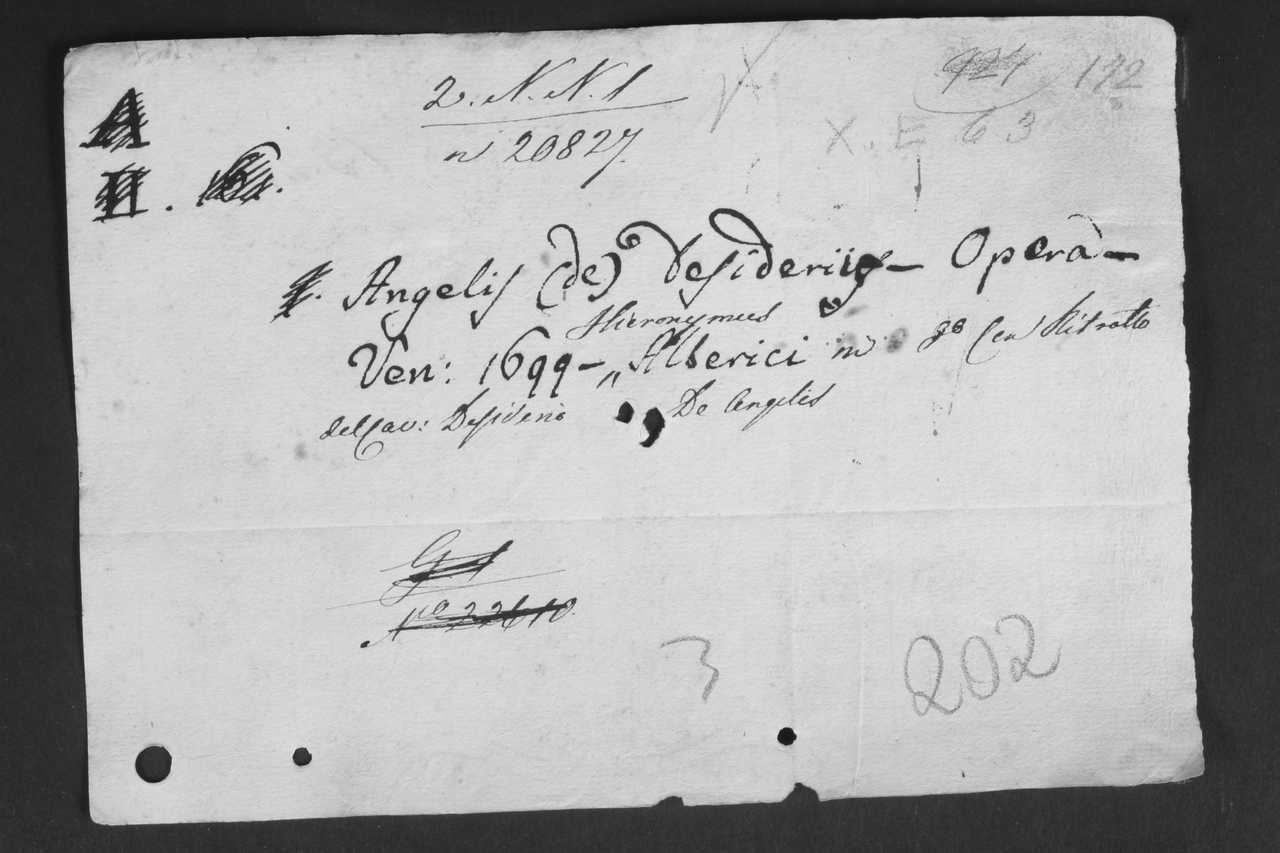 2. N. N. 1
n 20827.
924 172
X. E 63
A
II . 
Angelis (de) Desiderius — Opera —
Hieronymus
Ven: 1699 — „ Alberici in 8º Con Ritratto
del Cav: Desiderio De Angelis
G 1
Nº 22610
3
202